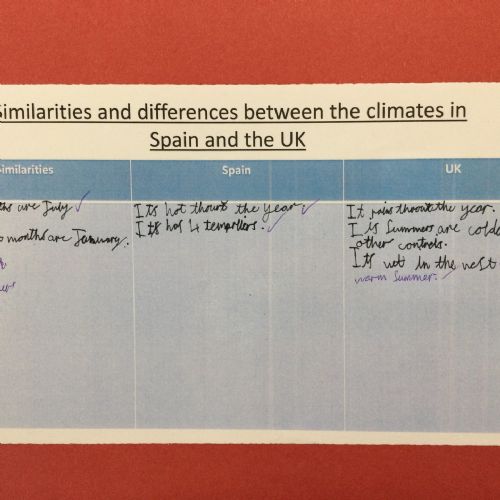 Similarities and differences between the climates in
Spain and the UK
Similarities
Spain
UK
are July
months are January.
Its hot thourt the year.
It's has 4 tempartters.
It rains throute the year.
It is Summers are colde
other controls.
It's wet in the west
warm summer.